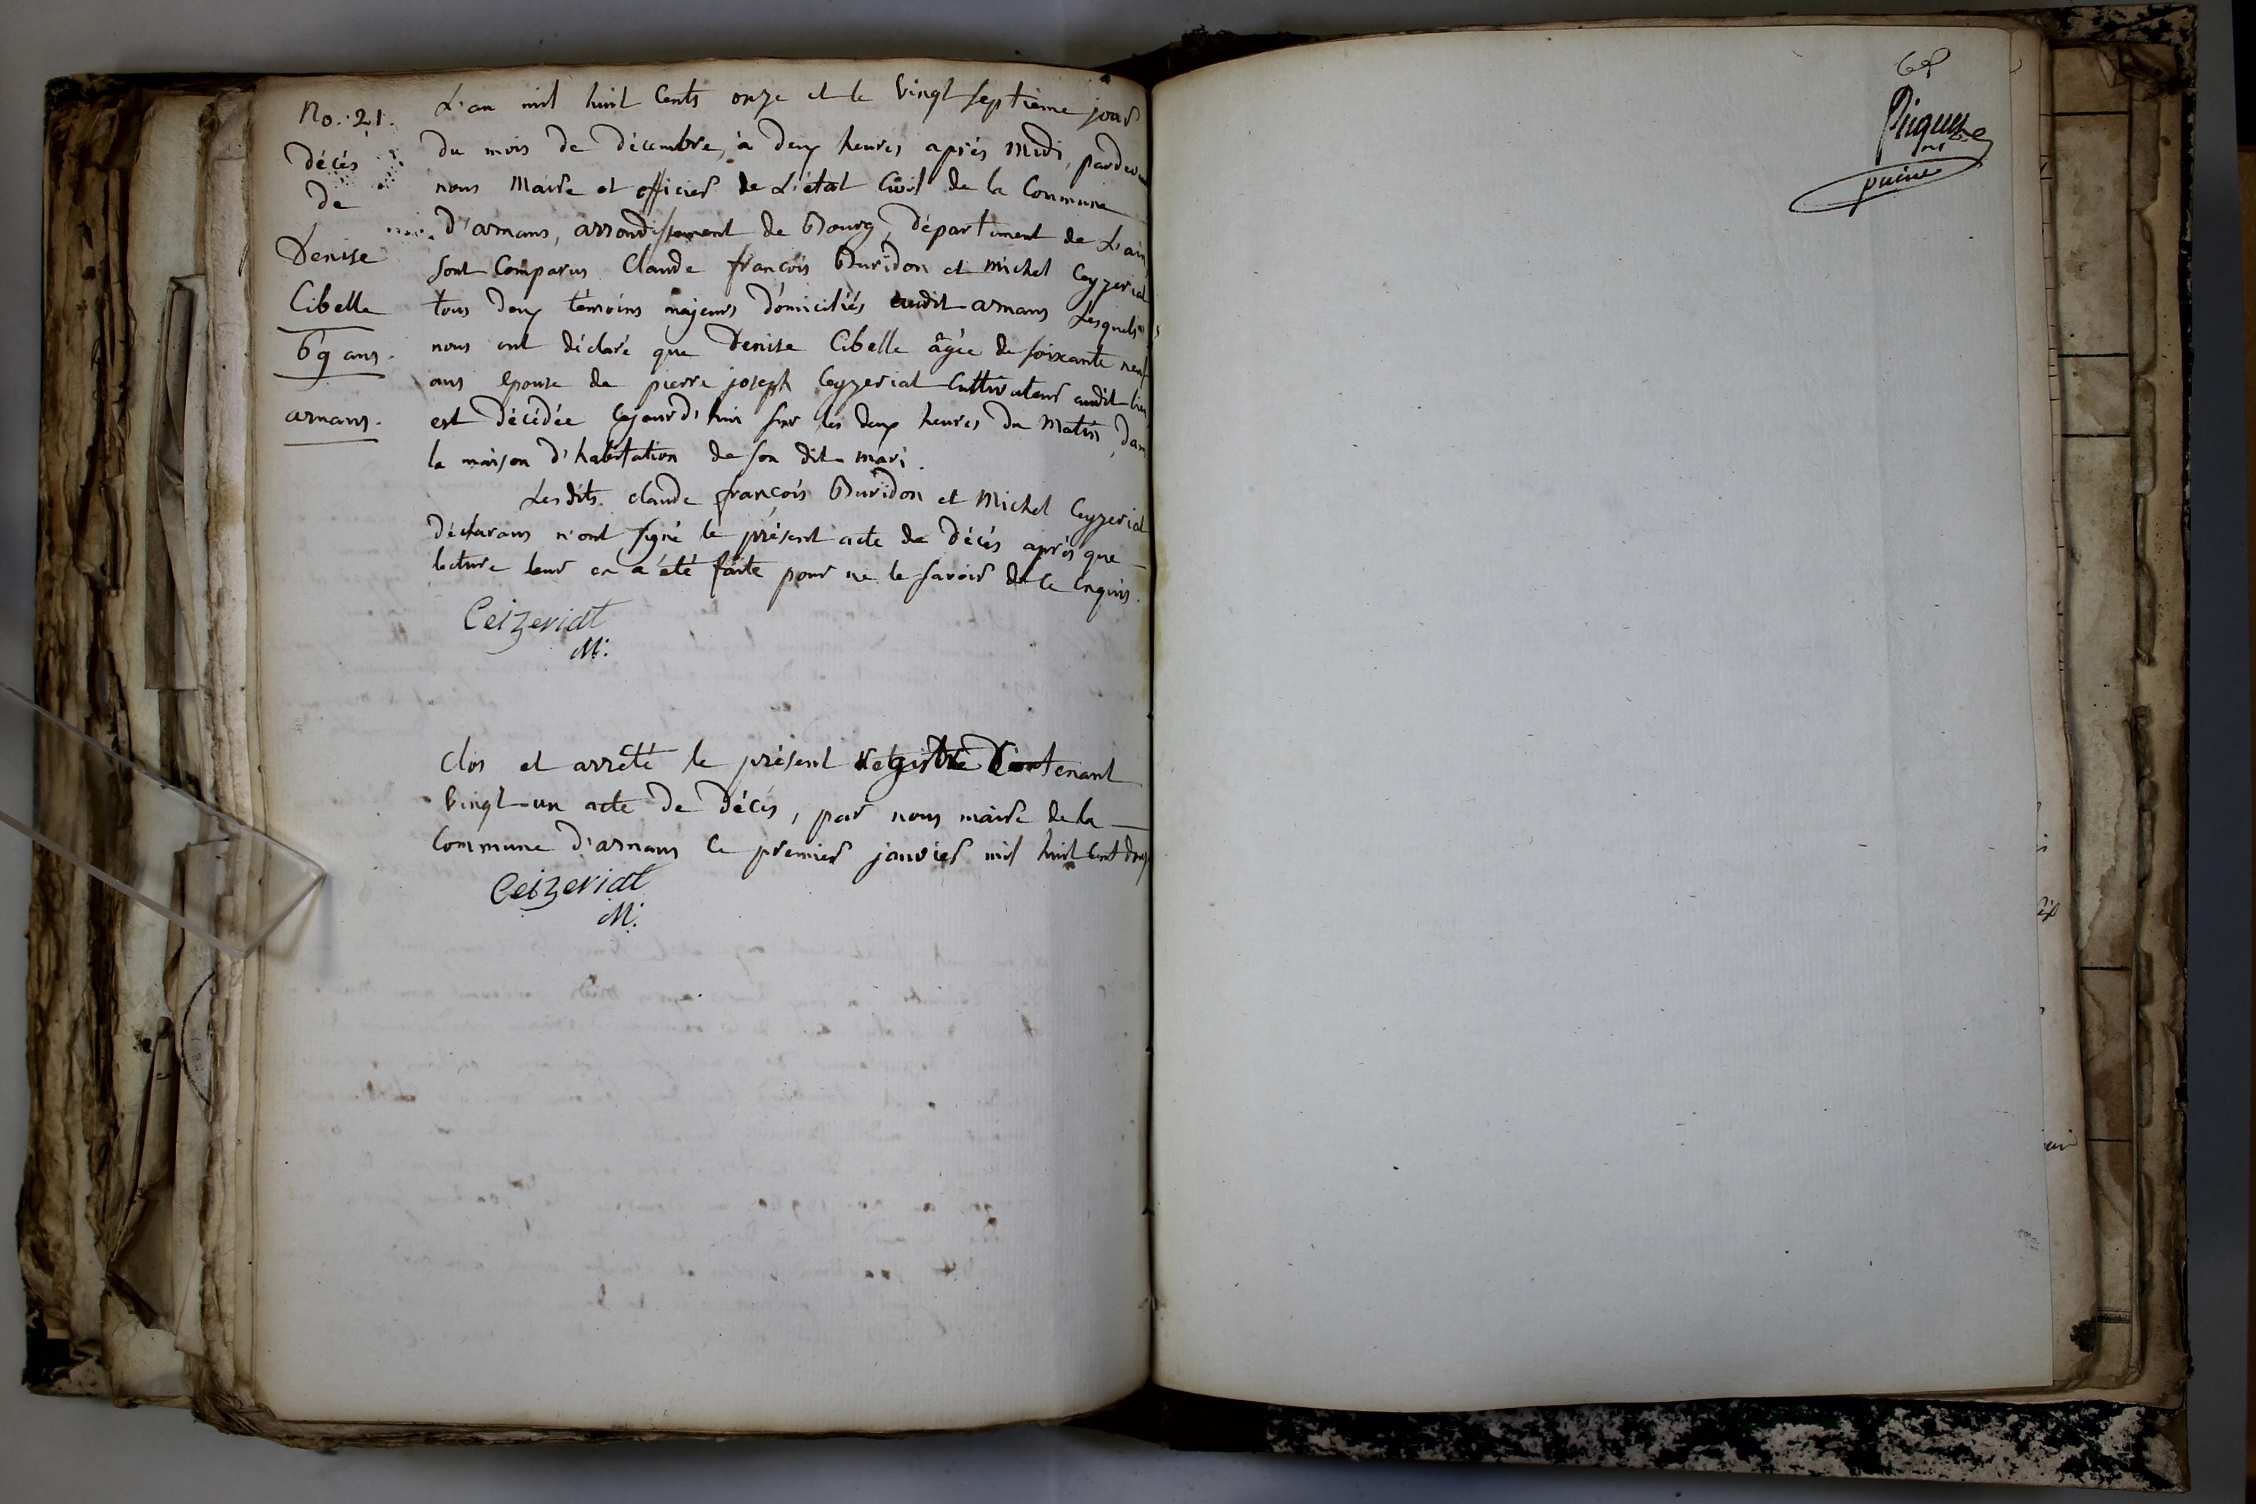 No. 21.
décés
de
Denise
Cibelle
69 ans.
arnans.
L'an mil huit Cents onze et le vingt septième jour
du mois de décembre, à deux heures après midi, pardevant
nous Maire et officier de L'état Civil de la Commune
d'arnans, arrondissement de Bourg, département de L'ain,
sont Comparus Claude françois Buridon et Michel Ceyzeriat
tous deux témoins majeurs domiciliés audit arnans Lesquels
nous ont déclaré que Denise Cibelle âgée de soixante neuf
ans Epouse de pierre joseph Ceyzeriat Cultivateur audit lieu
est décédée Cejourd'hui sur les deux heures du Matin, dans
la maison d'habitation de son dit mari.
Lesdits claude françois Buridon et Michel Ceyzeriat
déclarans n'ont signé le présent acte de décés après que
lecture leur en a été faite pour ne le savoir de Ce Enquis.
Ceizeriat
M.
Clos et arrêté le présent Registre Contenant
vingt-un acte de décés, par nous maire de la
Commune d'arnans Ce premier janvier mil huit Cent douze
Ceizeriat
M.